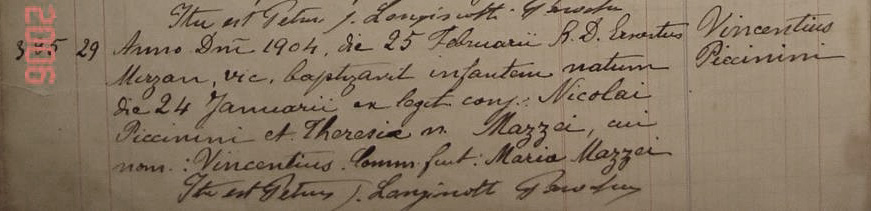 Ita est Petrus J. Langinotti Parochus
355 29 Anno Dni 1904, die 25 Februarii R. D. Ernestus Vincentius
Mizzan, vic. baptizavit infantem natum Piccinini
die 24 Januarii ex legit. conj.: Nicolai
Piccinini et Theresia n. Mazzei, cui
nom.: Vincentius. Comm. fuit: Maria Mazzei
Ita est Petrus J. Langinotti Parochus
2006